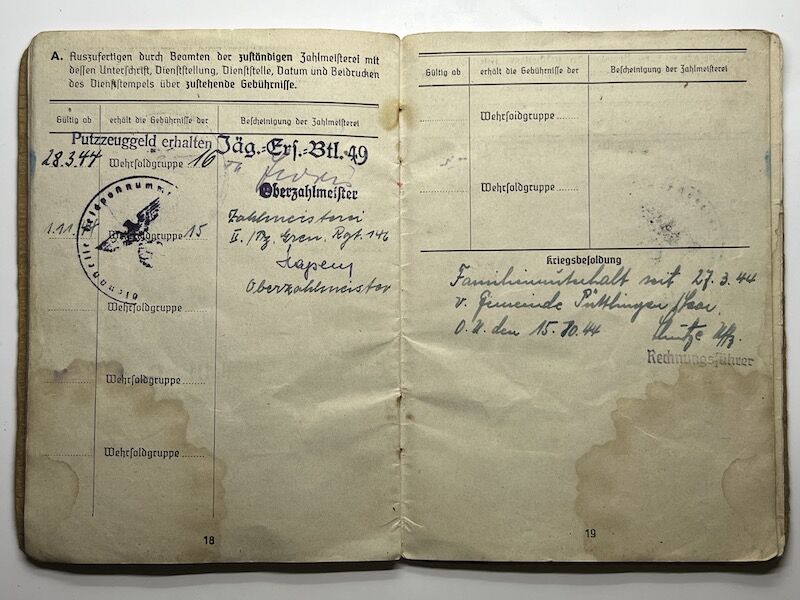 A. Auszufertigen durch Beamten der zuständigen Zahlmeisterei mit
dessen Unterschrift, Dienststellung, Dienststelle, Datum und Beidrucken
des Dienststempels über zustehende Gebührnisse.
Gültig ab erhält die Gebührnisse der Bescheinigung der Zahlmeisterei
Putzzeuggeld erhalten Jäg.-Ers.-Btl. 49
28.3.44 Wehrsoldgruppe 16
Oberzahlmeister
Zahlmeisterei
1.11. Wehrsoldgruppe 15
II./Pz. Gren. Rgt. 146
Oberzahlmeister
Wehrsoldgruppe
Wehrsoldgruppe
Wehrsoldgruppe
18
Gültig ab erhält die Gebührnisse der Bescheinigung der Zahlmeisterei
Wehrsoldgruppe
Wehrsoldgruppe
Kriegsbesoldung
Familienunterhalt seit 27.3.44
v. Gemeinde Püttlingen/Saar.
O.U. den 15.10.44 Uffz.
Rechnungsführer
19